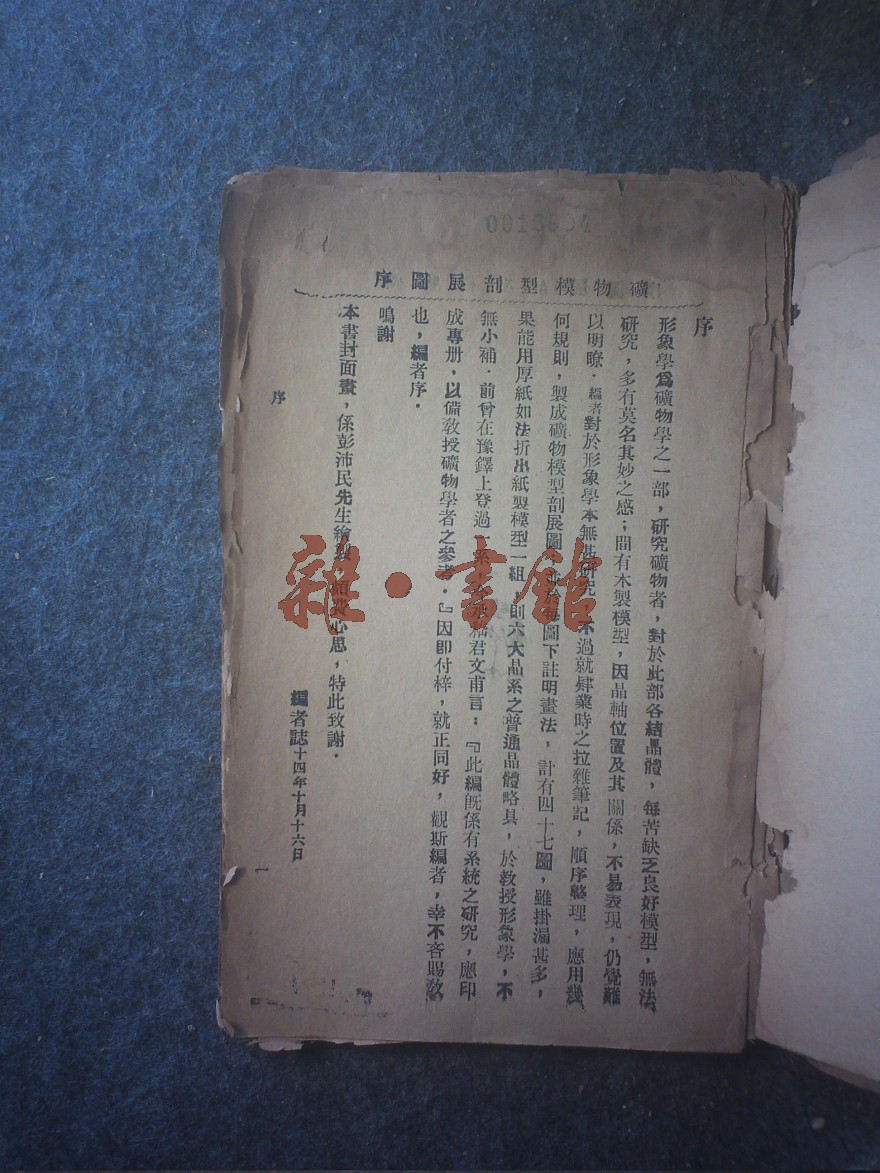 礦物模型剖展圖序
序
形象學爲礦物學之一部，研究礦物者，對於此部各結晶體，每苦缺乏良好模型，無法
研究，多有莫名其妙之感；間有木製模型，因晶軸位置及其關係，不易表現，仍覺難
以明瞭．編者對於形象學本無甚研究，不過就肄業時之拉雜筆記，順序整理，應用幾
何規則，製成礦物模型剖展圖，並於每圖下註明畫法，計有四十七圖，雖掛漏甚多，
果能用厚紙如法折出紙製模型一組，則六大晶系之普通晶體略具，於教授形象學，不
無小補．前曾在豫鐸上登過一系，君文甫言：『此編旣係有系統之研究，應印
成專册，以備教授礦物學者之參考．』因卽付梓，就正同好，觀斯編者，幸不吝賜教
也，編者序．
鳴謝
本書封面畫，係彭沛民先生繪製，頗費心思，特此致謝．
編者誌十四年十月十六日
序
一
雜·書館